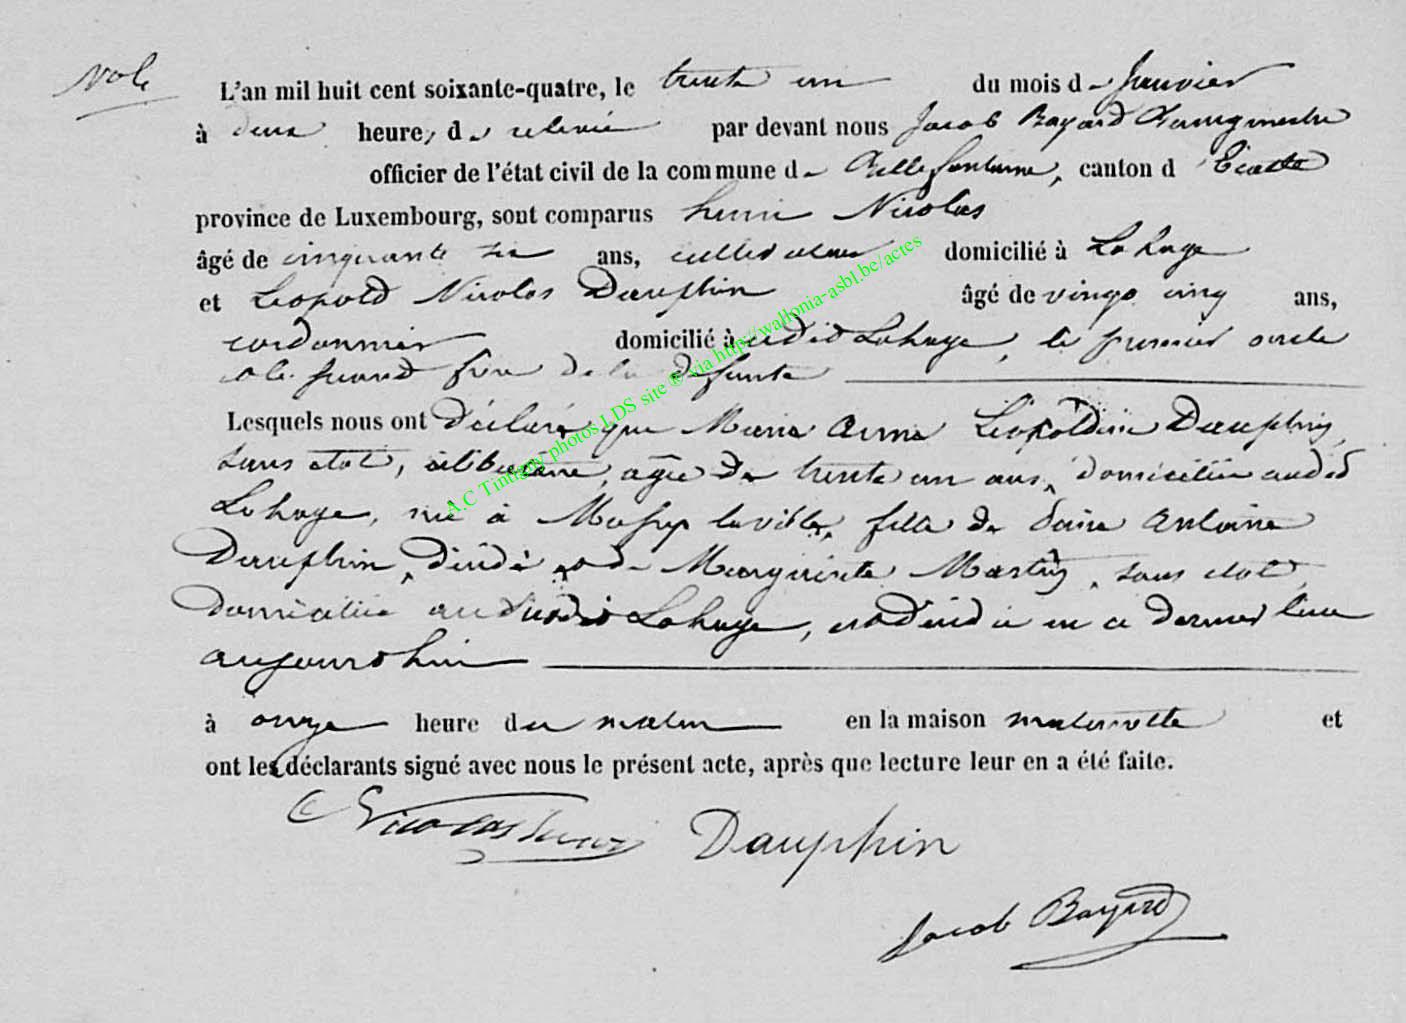 N° 4
L'an mil huit cent soixante-quatre, le trente un du mois de Janvier
à deux heures de relevée par devant nous Jacob Bayard Bourgmestre
officier de l'état civil de la commune de Bellefontaine, canton d'Etalle
province de Luxembourg, sont comparus henri Nicolas
âgé de cinquante six ans, cultivateur domicilié à Lahage
et Léopold Nicolas Dauphin âgé de vingt cinq ans,
cordonnier domicilié à audit Lahage, le premier oncle
et le second frère de la défunte
Lesquels nous ont déclaré que Marie Anne Léopoldine Dauphin,
sans état, célibataire, agée de trente un ans, domiciliée audit
Lahage, née à fille de Antoine
Dauphin, décédé, et de Marguerite sans état,
domiciliée au susdit Lahage, est décédée en ce dernier lieu
aujourdhui
à onze heure du matin en la maison maternelle et
ont les déclarants signé avec nous le présent acte, après que lecture leur en a été faite.
Nicolas henri Dauphin
Jacob Bayard
A.C Tintigny photos LDS site ® via http://wallonia-asbl.be/actes